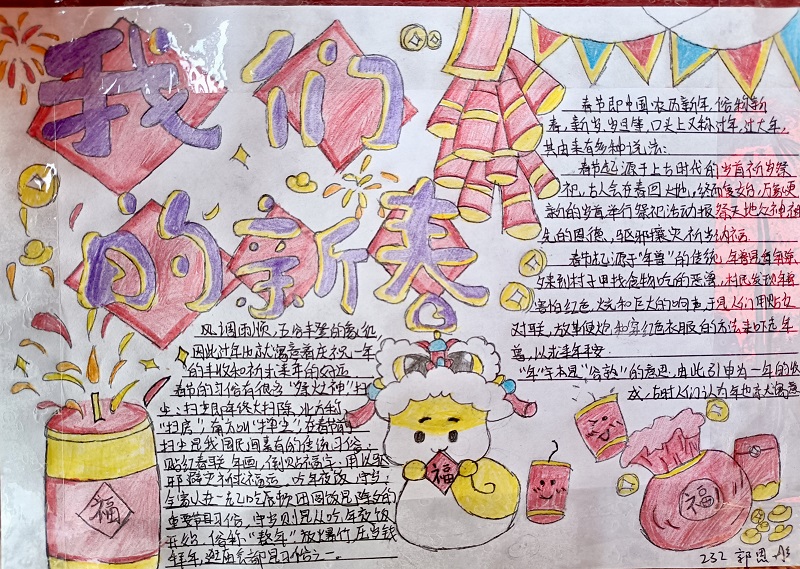 我们
的新春
春节即中国农历新年，俗称新
春，新岁，岁旦等，口头上又称过年，过大年，
其由来有多种说法：
春节起源于上古时代的岁首祈岁祭
祀，古人会在春回大地，终而复始，万象更
新的岁首举行祭祀活动报祭天地众神祖
先的恩德，驱邪攘灾祈岁纳福
春节起源于“年兽”的传统，年兽是
夕来到村子里找食物吃的恶兽，村民发现年兽
害怕红色，火光和巨大的响声，于是人们用贴
对联，放鞭炮和穿红色衣服的方法来吓走年
兽，以求来年平安
“年”字本是“谷熟”的意思，由此引申为一年的收
成，古时人们认为年也
风调雨顺，五谷丰登的象征
因此过年也就寓意着庆祝一年
的丰收和祈求来年的
春节的习俗有很多“祭灶神”扫
尘：扫尘即年终大扫除，北方称
“扫房”，南方叫“掸尘”，在春节前
扫尘是我国民间素有的传统习俗；
贴红春联年画，倒贴福字：用以驱
邪避灾迎祥福运，吃年夜饭，守岁：
全家人在一起吃顿团圆饭是除夕的
重要节目习俗，守岁则是从吃年夜饭
开始，俗称“熬年”放爆竹压岁钱
拜年，逛庙会都是习俗之一。
福
福
福
232 郭恩彤